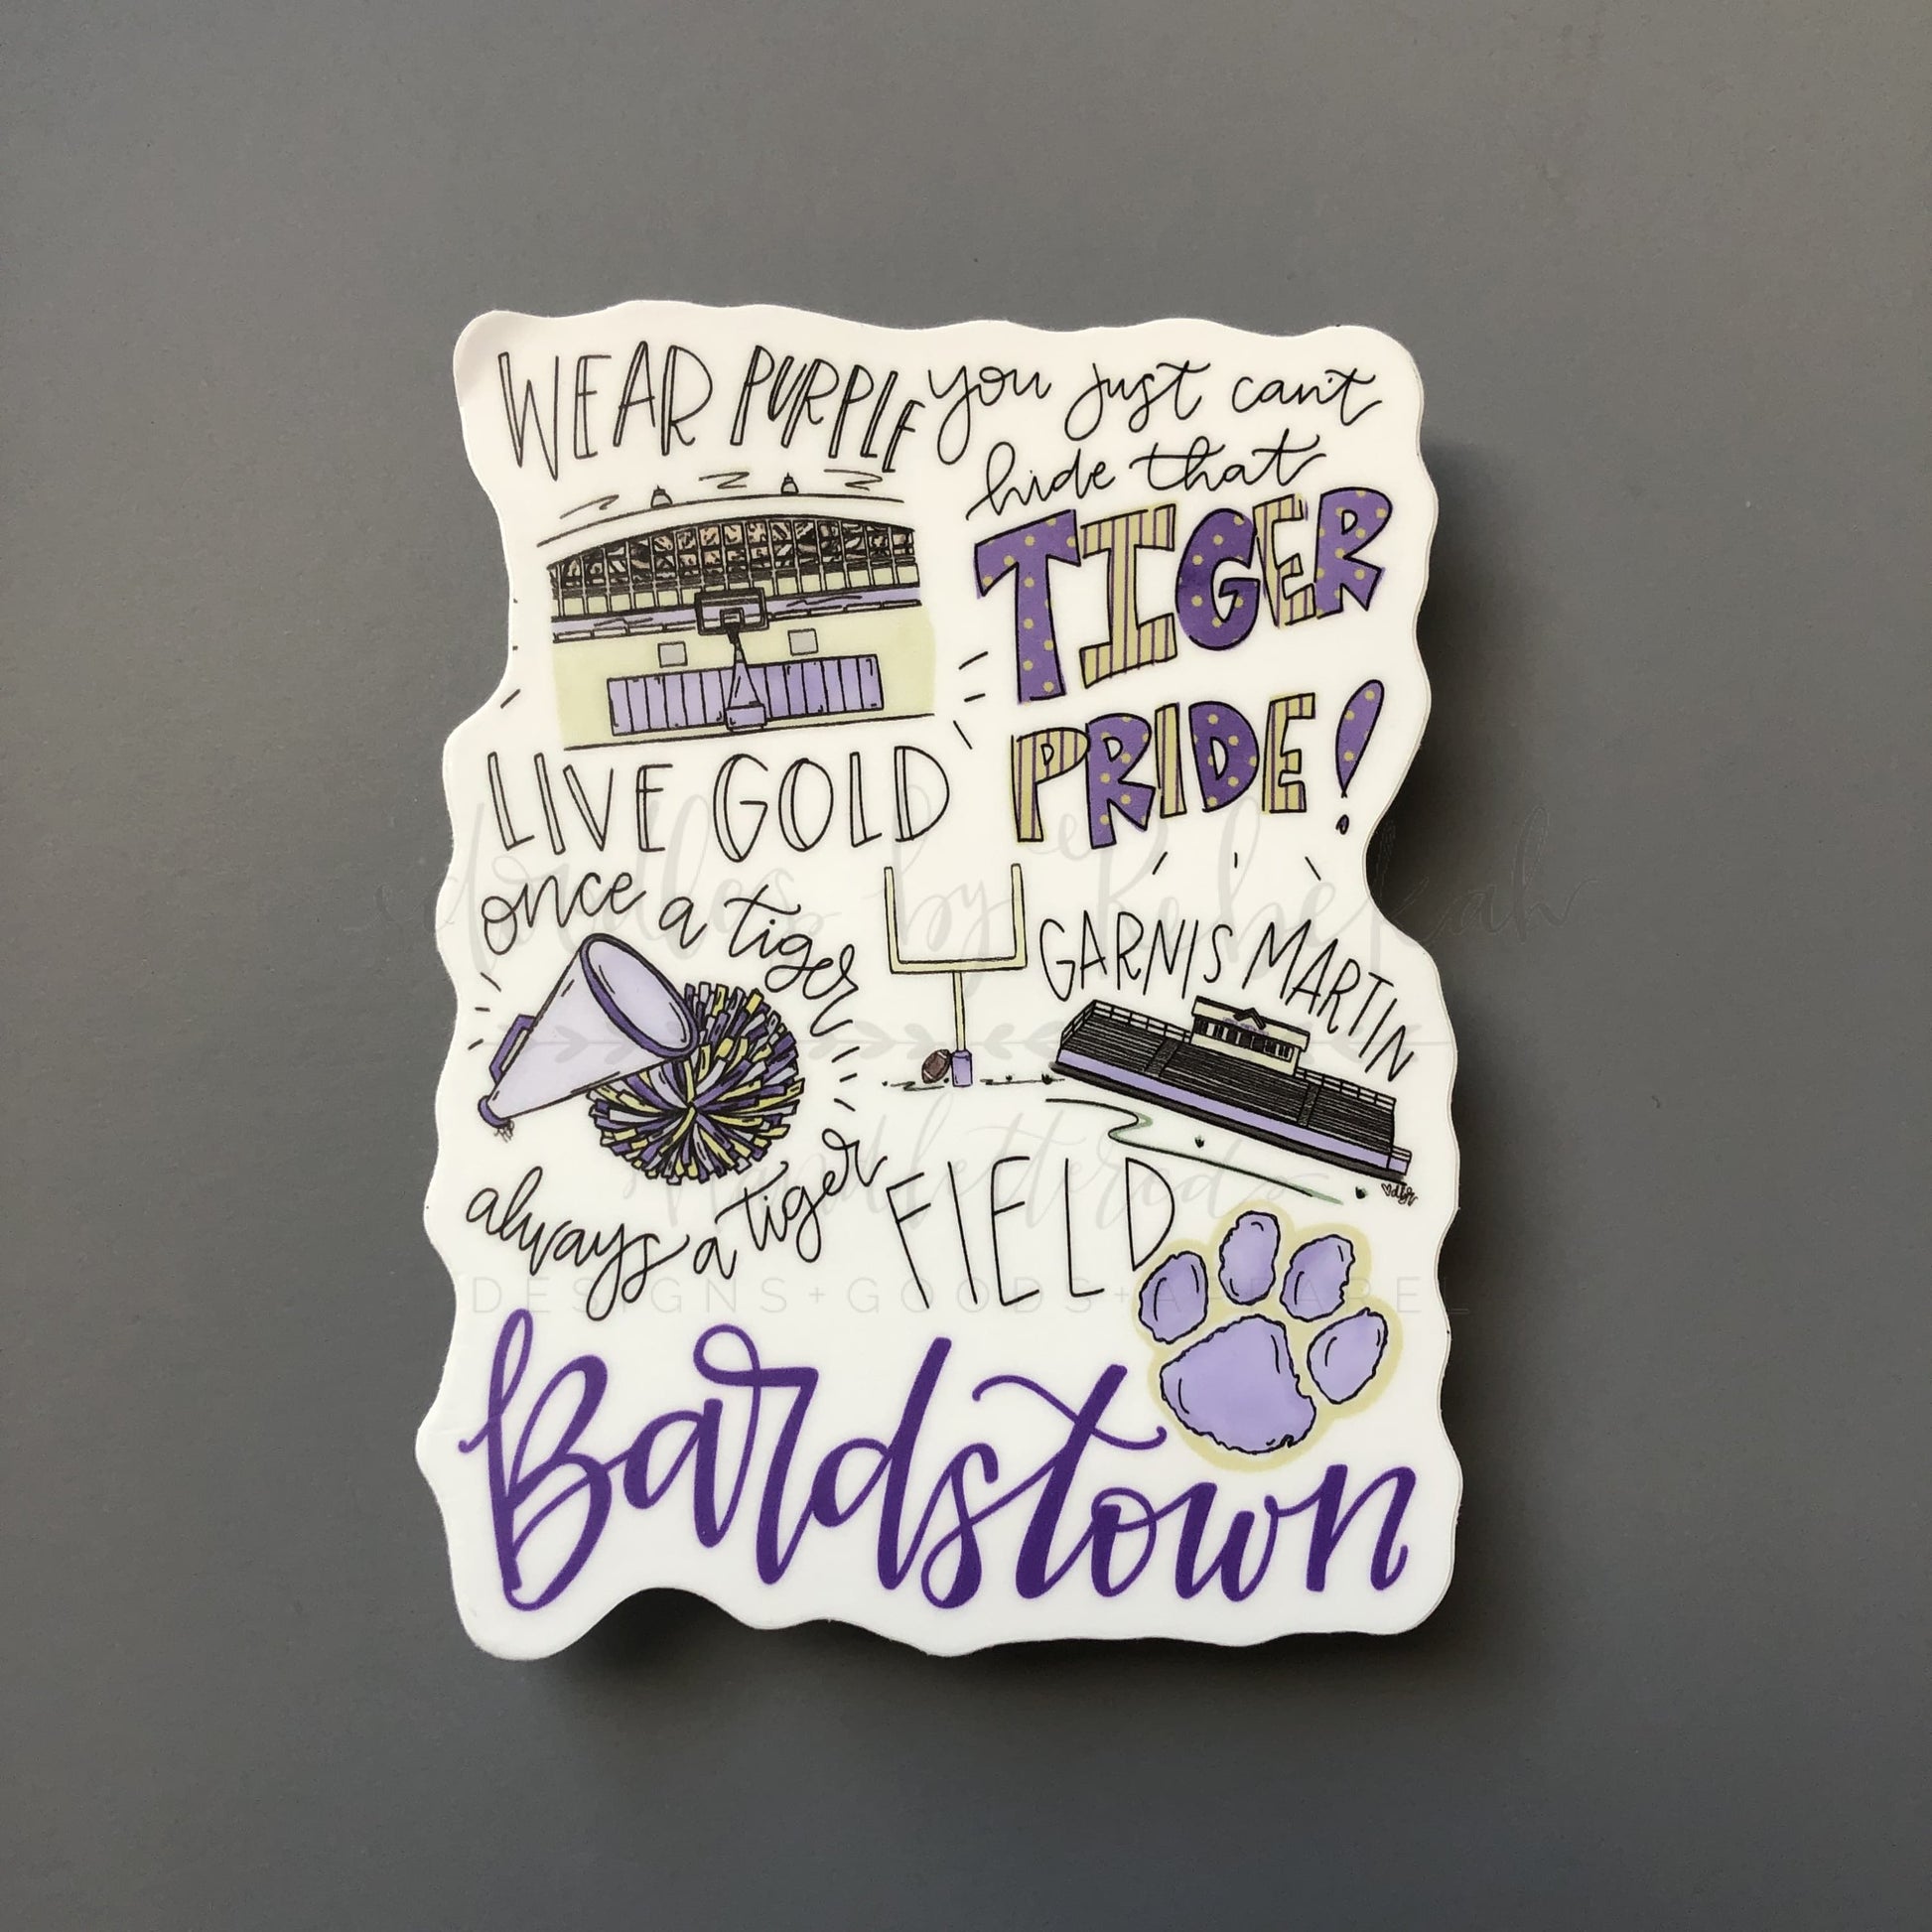 WEAR PURPLE
you just can't
hide that
TIGER
PRIDE!
LIVE GOLD
once a tiger
always a tiger
GARNIS MARTIN
FIELD
Bardstown
doodles by Rebekah
Handlettered
DESIGNS+GOODS+APPAREL